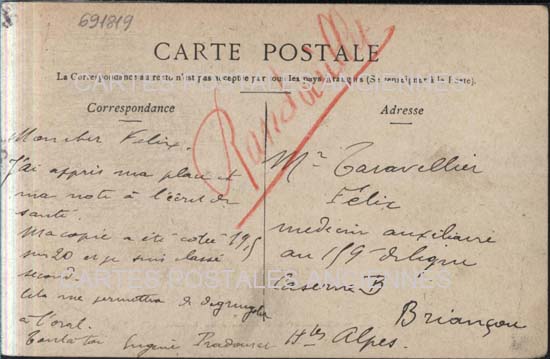 691819
CARTE POSTALE
La Correspondance au recto n'est pas acceptée par tous les pays étrangers (Se renseigner à la Poste).
Correspondance
Adresse
Mon cher Félix.
J'ai appris ma place et
ma note à l'écrit de
santé.
Ma copie a été cotée 19,5
sur 20 et je suis classé
second.
Cela me permettra de dégringoler
à l'oral.
Eugène
Mr Taravellier
Félix
medecin auxiliaire
au 159 de ligne
Caserne B
Briançon
Htes Alpes.
CARTES POSTALES ANCIENNES
CARTES POSTALES ANCIENNES